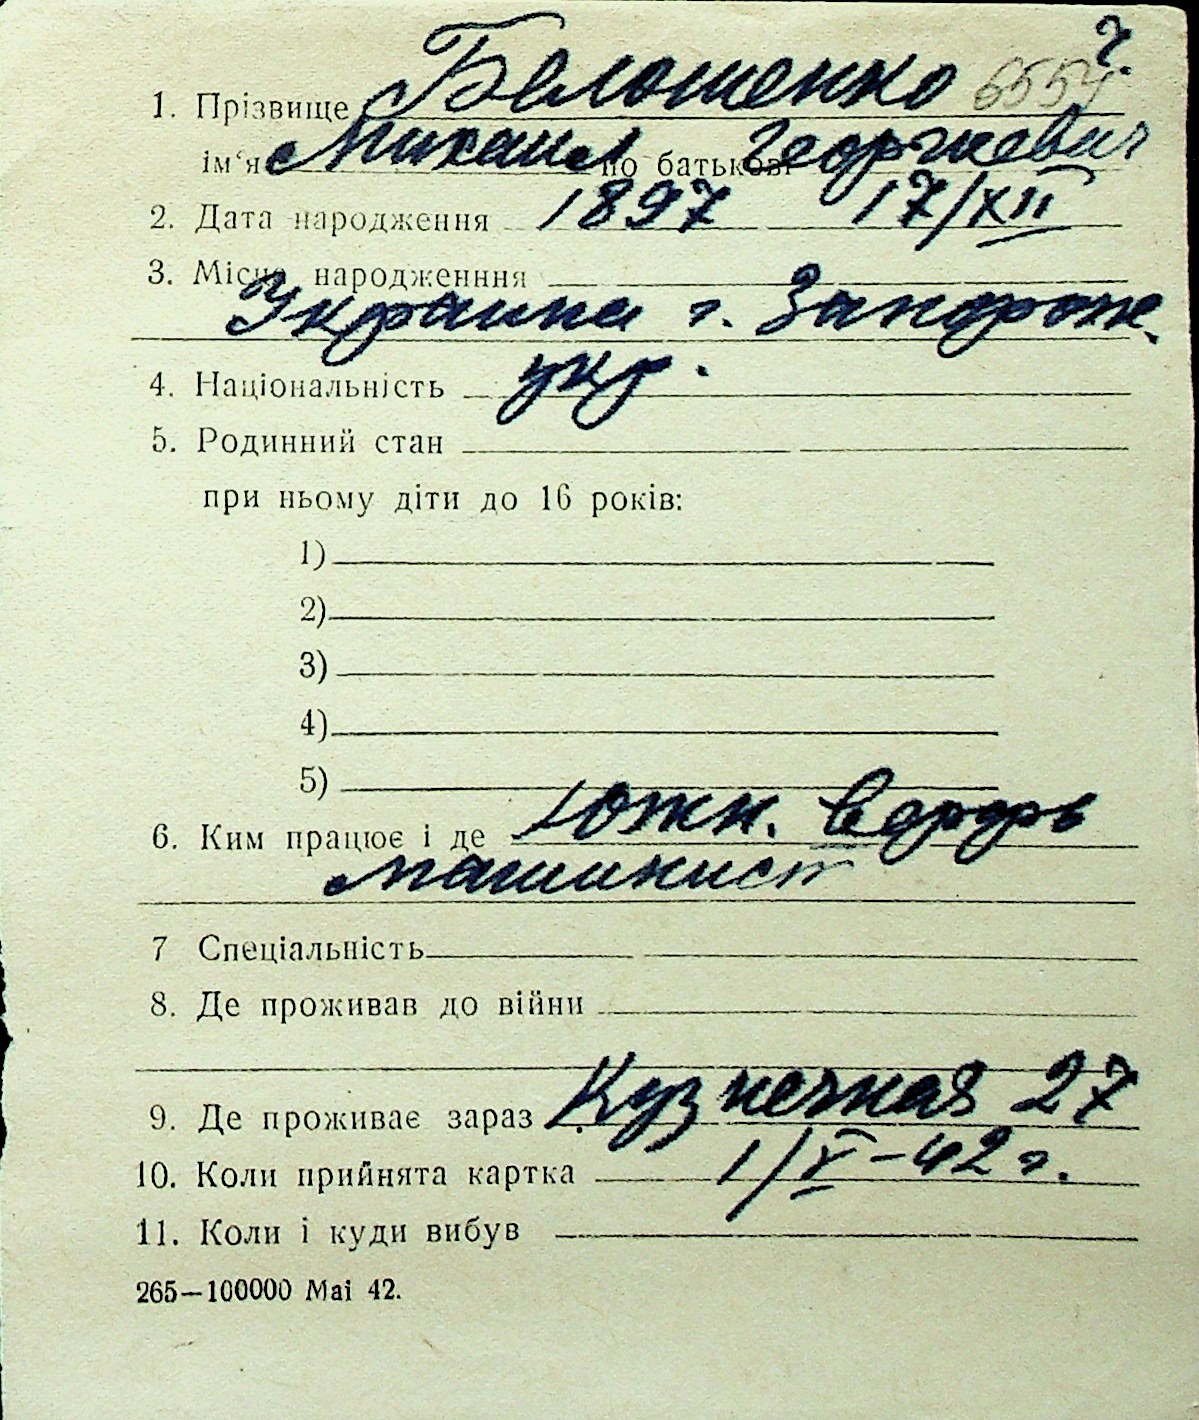 ч.
1. Прізвище Белошенко 6554
ім'я Михаил по батькові Георгиевич
2. Дата народження 1897 17/XII
3. Місце народженння
Украина г. Запорож.
4. Національність укр.
5. Родинний стан
при ньому діти до 16 років:
1)
2)
3)
4)
5)
6. Ким працює і де Южн. верфь
машинист
7 Спеціальність
8. Де проживав до війни
9. Де проживає зараз Кузнечная 27
10. Коли прийнята картка 1/V-42 г.
11. Коли і куди вибув
265—100000 Mai 42.